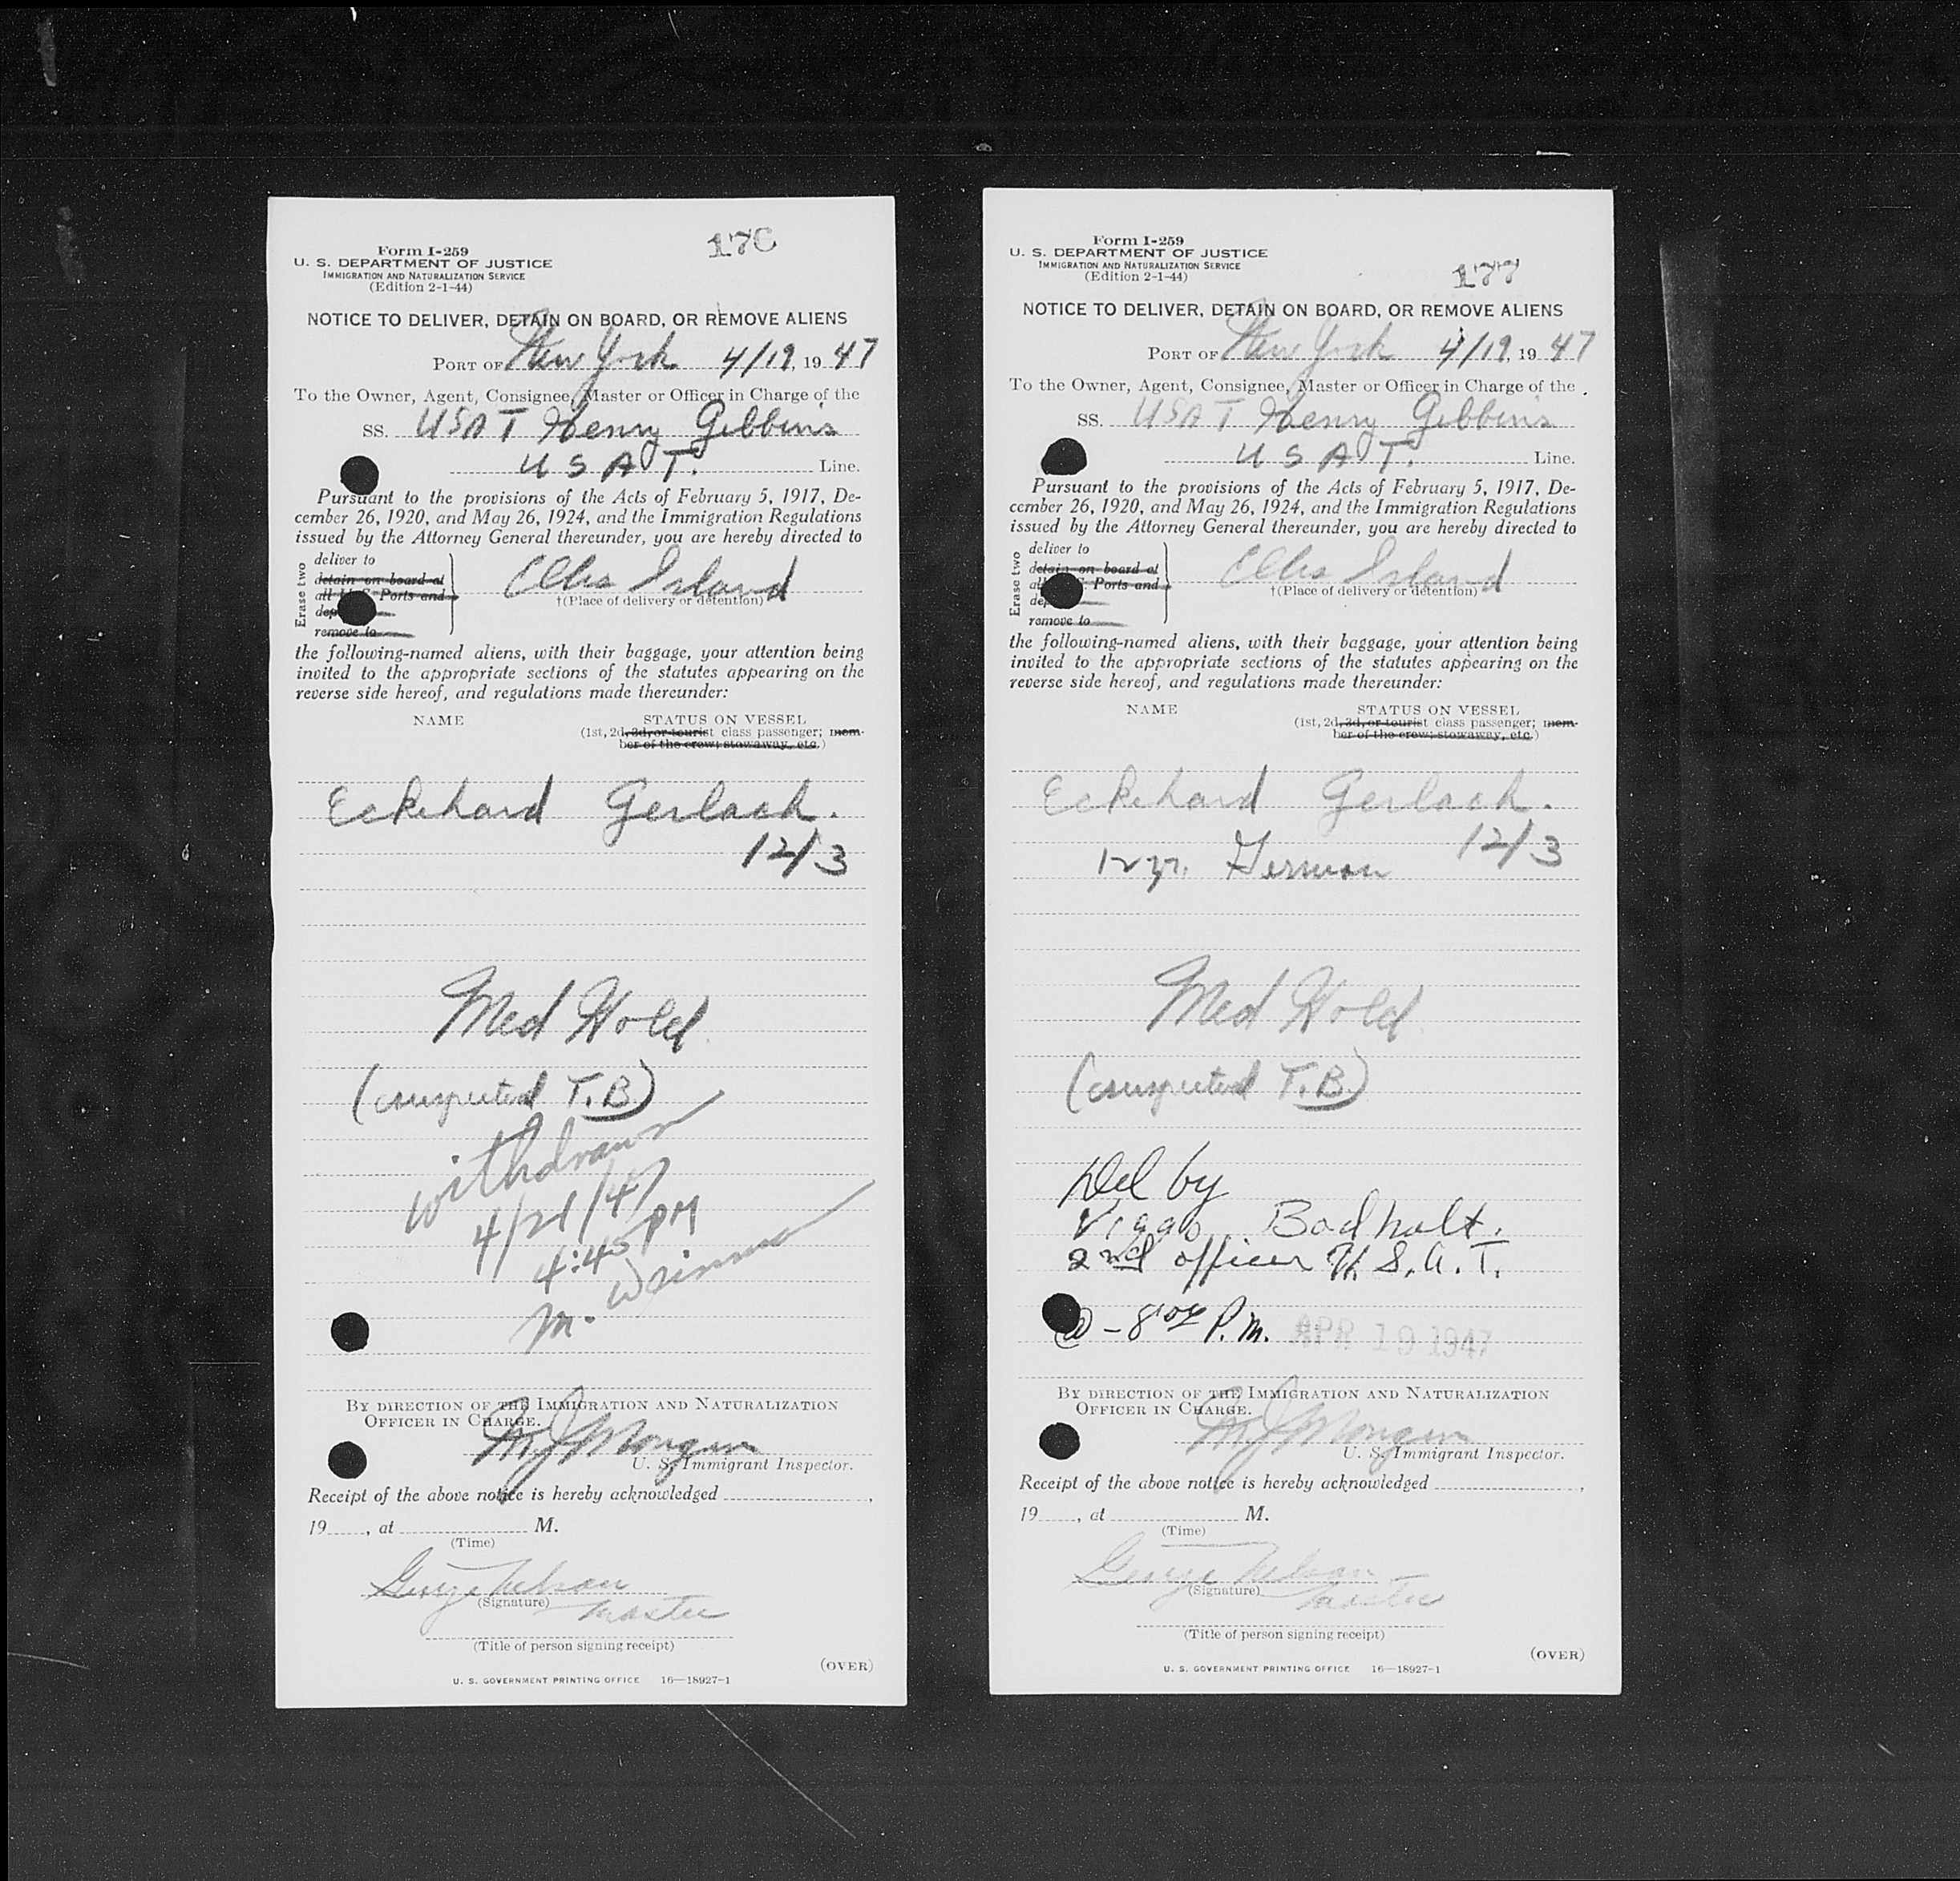 176
Form I-259
U. S. DEPARTMENT OF JUSTICE
IMMIGRATION AND NATURALIZATION SERVICE
(Edition 2-1-44)
NOTICE TO DELIVER, DETAIN ON BOARD, OR REMOVE ALIENS
PORT OF New York 4/19, 19 47
To the Owner, Agent, Consignee, Master or Officer in Charge of the
SS. USAT Henry Gibbins
U S A T. Line.
Pursuant to the provisions of the Acts of February 5, 1917, De-
cember 26, 1920, and May 26, 1924, and the Immigration Regulations
issued by the Attorney General thereunder, you are hereby directed to
Erase two
deliver to
detain on board at
all U.S. Ports and
remove to
Ellis Island
†(Place of delivery or detention)
the following-named aliens, with their baggage, your attention being
invited to the appropriate sections of the statutes appearing on the
reverse side hereof, and regulations made thereunder:
NAME STATUS ON VESSEL
(1st, 2d, 3d, or tourist class passenger; mem-
ber of the crew; stowaway, etc.)
Eckehard Gerlach.
12/3
Med Hold
(suspected T.B.)
withdrawn
4/21/47
4:45 PM
M.
BY DIRECTION OF THE IMMIGRATION AND NATURALIZATION
OFFICER IN CHARGE.
U. S. Immigrant Inspector.
Receipt of the above notice is hereby acknowledged ,
19 , at M.
(Time)
George Nelson
(Signature)
Master
(Title of person signing receipt)
(OVER)
U. S. GOVERNMENT PRINTING OFFICE 16—18927-1
Form I-259
U. S. DEPARTMENT OF JUSTICE
IMMIGRATION AND NATURALIZATION SERVICE
(Edition 2-1-44)
177
NOTICE TO DELIVER, DETAIN ON BOARD, OR REMOVE ALIENS
PORT OF New York 4/19, 19 47
To the Owner, Agent, Consignee, Master or Officer in Charge of the
SS. USAT Henry Gibbins
U S A T. Line.
Pursuant to the provisions of the Acts of February 5, 1917, De-
cember 26, 1920, and May 26, 1924, and the Immigration Regulations
issued by the Attorney General thereunder, you are hereby directed to
Erase two
deliver to
detain on board at
Ports and
remove to
Ellis Island
†(Place of delivery or detention)
the following-named aliens, with their baggage, your attention being
invited to the appropriate sections of the statutes appearing on the
reverse side hereof, and regulations made thereunder:
NAME STATUS ON VESSEL
(1st, 2d, 3d, or tourist class passenger; mem-
ber of the crew; stowaway, etc.)
Eckehard Gerlach.
12/3
12 yr. German
Med Hold
(suspected T.B.)
Del by
Viggo Badholt.
2nd officer U.S.A.T.
@ - P.M. APR 19 1947
BY DIRECTION OF THE IMMIGRATION AND NATURALIZATION
OFFICER IN CHARGE.
U. S. Immigrant Inspector.
Receipt of the above notice is hereby acknowledged ,
19 , at M.
(Time)
George Nelson
(Signature)
Master
(Title of person signing receipt)
(OVER)
U. S. GOVERNMENT PRINTING OFFICE 16—18927-1